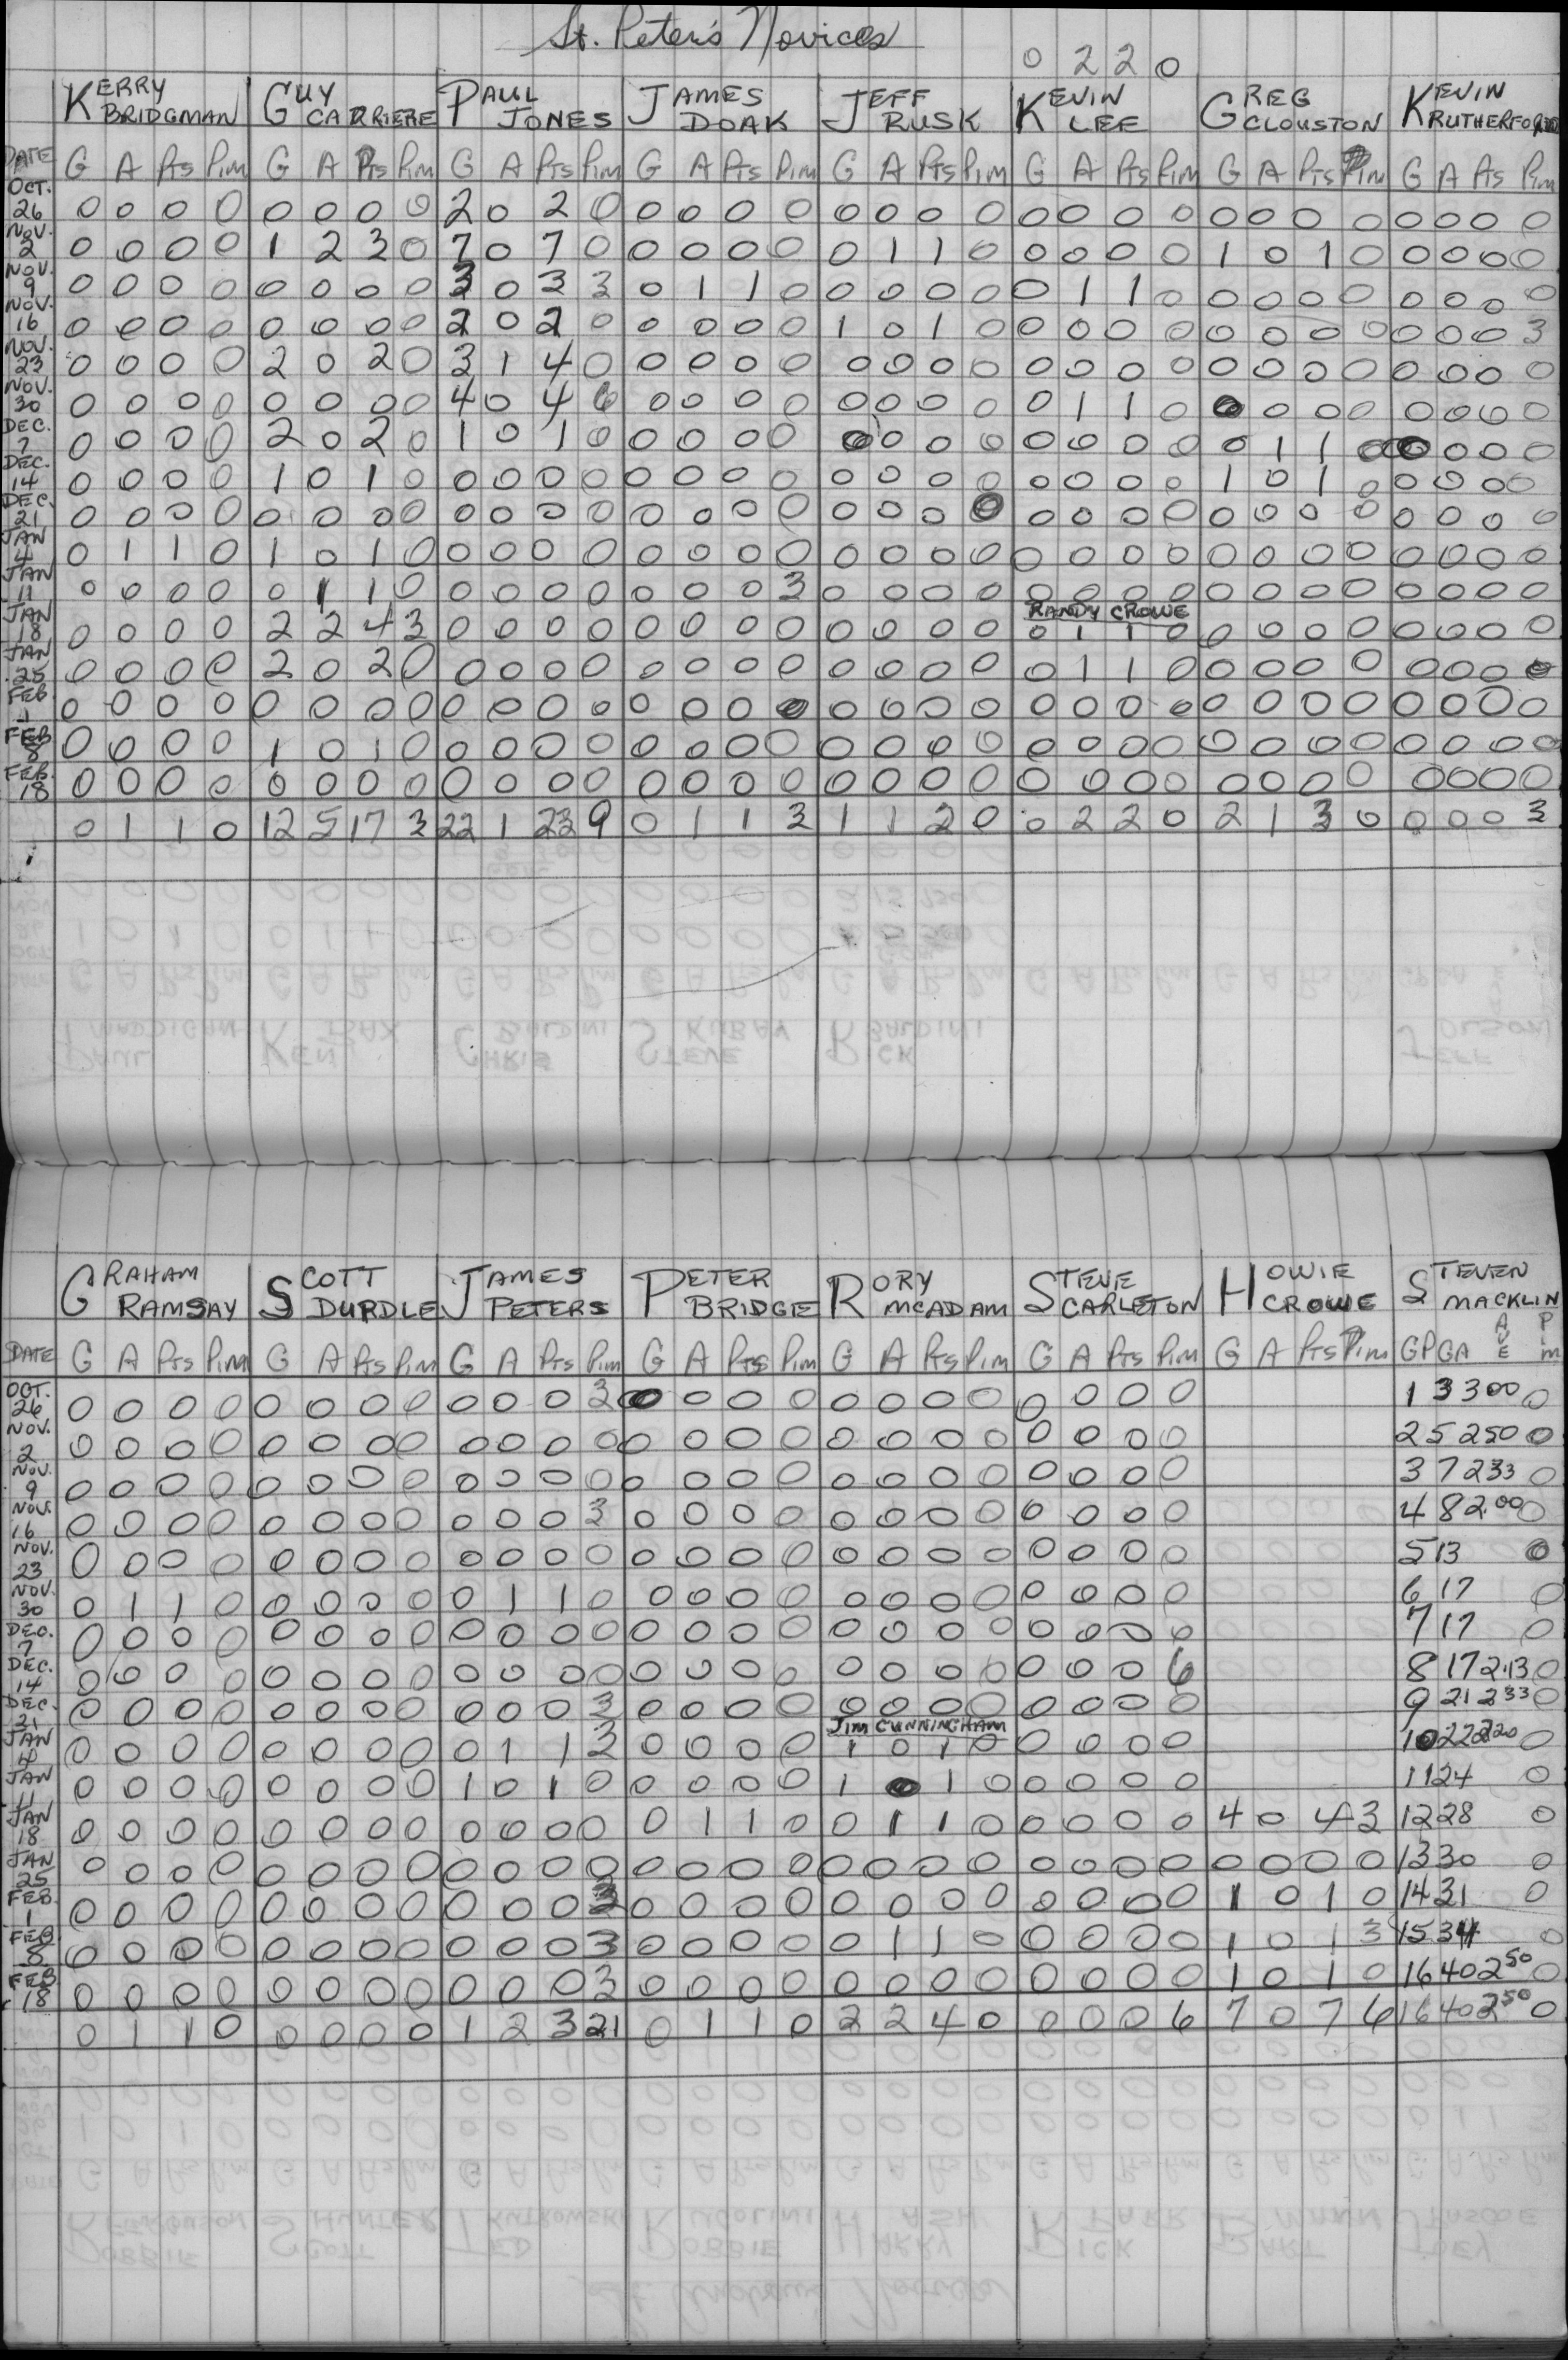 St. Peter's Novices
0 2 2 0
KERRY BRIDGMAN GUY CARRIERE PAUL JONES JAMES DOAK JEFF RUSK KEVIN LEE GREG CLOUSTON KEVIN RUTHERFORD
DATE G A Pts Pim G A Pts Pim G A Pts Pim G A Pts Pim G A Pts Pim G A Pts Pim G A Pts Pim G A Pts Pim
OCT. 26 0 0 0 0 0 0 0 0 2 0 2 0 0 0 0 0 0 0 0 0 0 0 0 0 0 0 0 0 0 0 0 0
NOV. 2 0 0 0 0 1 2 3 0 7 0 7 0 0 0 0 0 0 1 1 0 0 0 0 0 1 0 1 0 0 0 0 0
NOV. 9 0 0 0 0 0 0 0 0 3 0 3 3 0 1 1 0 0 0 0 0 0 1 1 0 0 0 0 0 0 0 0 0
NOV. 16 0 0 0 0 0 0 0 0 2 0 2 0 0 0 0 0 1 0 1 0 0 0 0 0 0 0 0 0 0 0 0 3
NOV. 23 0 0 0 0 2 0 2 0 3 1 4 0 0 0 0 0 0 0 0 0 0 0 0 0 0 0 0 0 0 0 0 0
NOV. 30 0 0 0 0 0 0 0 0 4 0 4 6 0 0 0 0 0 0 0 0 0 1 1 0 0 0 0 0 0 0 0 0
DEC. 7 0 0 0 0 2 0 2 0 1 0 1 0 0 0 0 0 0 0 0 0 0 0 0 0 0 1 1 0 0 0 0 0
DEC. 14 0 0 0 0 1 0 1 0 0 0 0 0 0 0 0 0 0 0 0 0 0 0 0 0 1 0 1 0 0 0 0 0
DEC. 21 0 0 0 0 0 0 0 0 0 0 0 0 0 0 0 0 0 0 0 0 0 0 0 0 0 0 0 0 0 0 0 0
JAN 4 0 1 1 0 1 0 1 0 0 0 0 0 0 0 0 0 0 0 0 0 0 0 0 0 0 0 0 0 0 0 0 0
JAN 11 0 0 0 0 0 1 1 0 0 0 0 0 0 0 0 3 0 0 0 0 0 0 0 0 0 0 0 0 0 0 0 0
RANDY CROWE
JAN 18 0 0 0 0 2 2 4 3 0 0 0 0 0 0 0 0 0 0 0 0 0 1 1 0 0 0 0 0 0 0 0 0
JAN 25 0 0 0 0 2 0 2 0 0 0 0 0 0 0 0 0 0 0 0 0 0 1 1 0 0 0 0 0 0 0 0 0
FEB. 1 0 0 0 0 0 0 0 0 0 0 0 0 0 0 0 0 0 0 0 0 0 0 0 0 0 0 0 0 0 0 0 0
FEB 8 0 0 0 0 1 0 1 0 0 0 0 0 0 0 0 0 0 0 0 0 0 0 0 0 0 0 0 0 0 0 0 0
FEB. 18 0 0 0 0 0 0 0 0 0 0 0 0 0 0 0 0 0 0 0 0 0 0 0 0 0 0 0 0 0 0 0 0
0 1 1 0 12 5 17 3 22 1 23 9 0 1 1 3 1 1 2 0 0 2 2 0 2 1 3 0 0 0 0 3
GRAHAM RAMSAY SCOTT DURDLE JAMES PETERS PETER BRIDGE RORY MCADAM STEVE CARLETON HOWIE CROWE STEVEN MACKLIN
DATE G A Pts Pim G A Pts Pim G A Pts Pim G A Pts Pim G A Pts Pim G A Pts Pim G A Pts Pim GP GA AVE PIM
OCT. 26 0 0 0 0 0 0 0 0 0 0 0 3 0 0 0 0 0 0 0 0 0 0 0 0 1 3 300 0
NOV. 2 0 0 0 0 0 0 0 0 0 0 0 0 0 0 0 0 0 0 0 0 0 0 0 0 2 5 250 0
NOV. 9 0 0 0 0 0 0 0 0 0 0 0 0 0 0 0 0 0 0 0 0 0 0 0 0 3 7 233 0
NOV. 16 0 0 0 0 0 0 0 0 0 0 0 3 0 0 0 0 0 0 0 0 0 0 0 0 4 8 2.00 0
NOV. 23 0 0 0 0 0 0 0 0 0 0 0 0 0 0 0 0 0 0 0 0 0 0 0 0 5 13 0
NOV. 30 0 1 1 0 0 0 0 0 0 1 1 0 0 0 0 0 0 0 0 0 0 0 0 0 6 17 0
DEC. 7 0 0 0 0 0 0 0 0 0 0 0 0 0 0 0 0 0 0 0 0 0 0 0 0 7 17 0
DEC. 14 0 0 0 0 0 0 0 0 0 0 0 0 0 0 0 0 0 0 0 0 0 0 0 6 8 17 2.13 0
DEC. 21 0 0 0 0 0 0 0 0 0 0 0 3 0 0 0 0 0 0 0 0 0 0 0 0 9 21 233 0
JIM CUNNINGHAM
JAN 4 0 0 0 0 0 0 0 0 0 1 1 3 0 0 0 0 1 0 1 0 0 0 0 0 10 22 220 0
JAN 11 0 0 0 0 0 0 0 0 1 0 1 0 0 0 0 0 1 0 1 0 0 0 0 0 11 24 0
JAN 18 0 0 0 0 0 0 0 0 0 0 0 0 0 1 1 0 0 1 1 0 0 0 0 0 4 0 4 3 12 28 0
JAN 25 0 0 0 0 0 0 0 0 0 0 0 0 0 0 0 0 0 0 0 0 0 0 0 0 0 0 0 0 13 30 0
FEB. 1 0 0 0 0 0 0 0 0 0 0 0 3 0 0 0 0 0 0 0 0 0 0 0 0 1 0 1 0 14 31 0
FEB 8 0 0 0 0 0 0 0 0 0 0 0 3 0 0 0 0 0 1 1 0 0 0 0 0 1 0 1 3 15 34 0
FEB 18 0 0 0 0 0 0 0 0 0 0 0 3 0 0 0 0 0 0 0 0 0 0 0 0 1 0 1 0 16 40 250 0
0 1 1 0 0 0 0 0 1 2 3 21 0 1 1 0 2 2 4 0 0 0 0 6 7 0 7 6 16 40 250 0